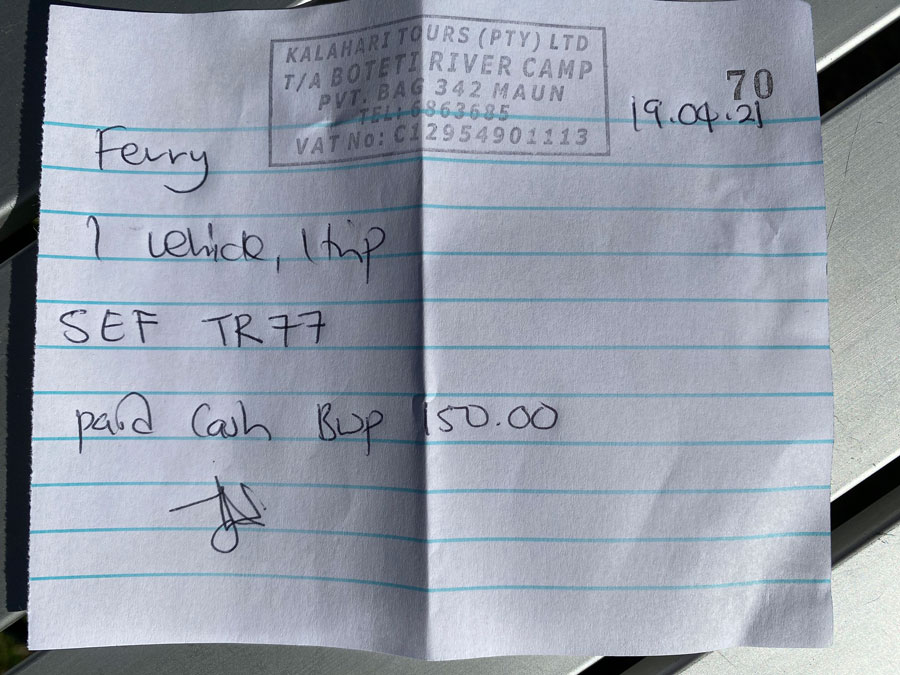 KALAHARI TOURS (PTY) LTD
T/A BOTETI RIVER CAMP
PVT. BAG 342 MAUN
TEL: 6863685
VAT No: C12954901113
70
19.04.21
Ferry
1 vehicle, 1 trip
SEF TR77
paid Cash Bwp 150.00